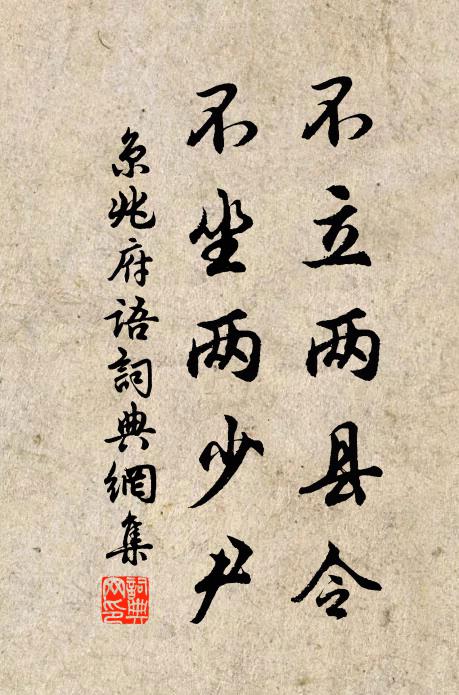 不立两县令
不坐两少尹
京兆府语詞典網集
詞典网印